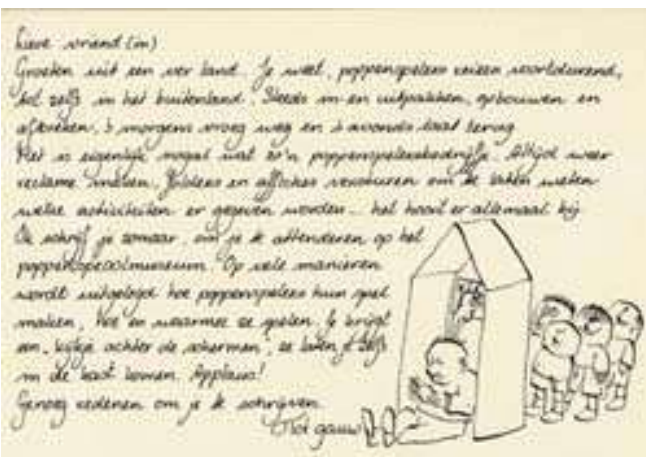 Lieve vriend(in)
Groeten uit een ver land. Je weet, poppenspelers reizen voortdurend,
tot zelfs in het buitenland. Steeds in-en uitpakken, opbouwen en
afbreken, 's morgens vroeg weg en 's avonds laat terug.
Het is eigenlijk nogal wat zo'n poppenspelersbedrijfje. Altijd weer
reclame maken, folders en affiches versturen om te laten weten
welke activiteiten er gegeven worden... het hoort er allemaal bij
Ik schrijf je zomaar, om je te attenderen op het
poppenspe(e)lmuseum. Op vele manieren
wordt uitgelegd hoe poppenspelers hun spel
maken, hoe en waarmee ze spelen. Je krijgt
een "kijkje achter de schermen", ze laten je zelfs
in de kast komen. Applaus!
Genoeg redenen om je te schrijven.
Tot gauw